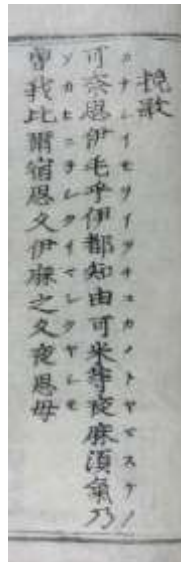 挽歌
カナシイモヲイツチユカメトヤマスケノ
可奈思伊毛乎伊都知由可米等夜麻須氣乃
ソカヒニネシクイマシクヤシモ
曽我比爾宿思久伊麻之久夜思母